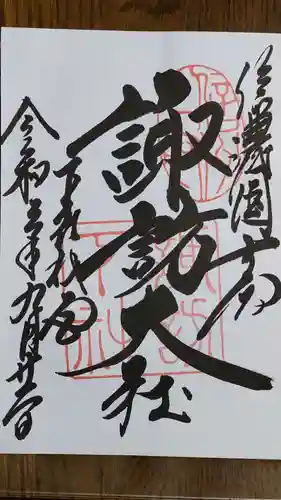 信濃國一宮
諏訪大社
下社秋宮
令和三年九月廿